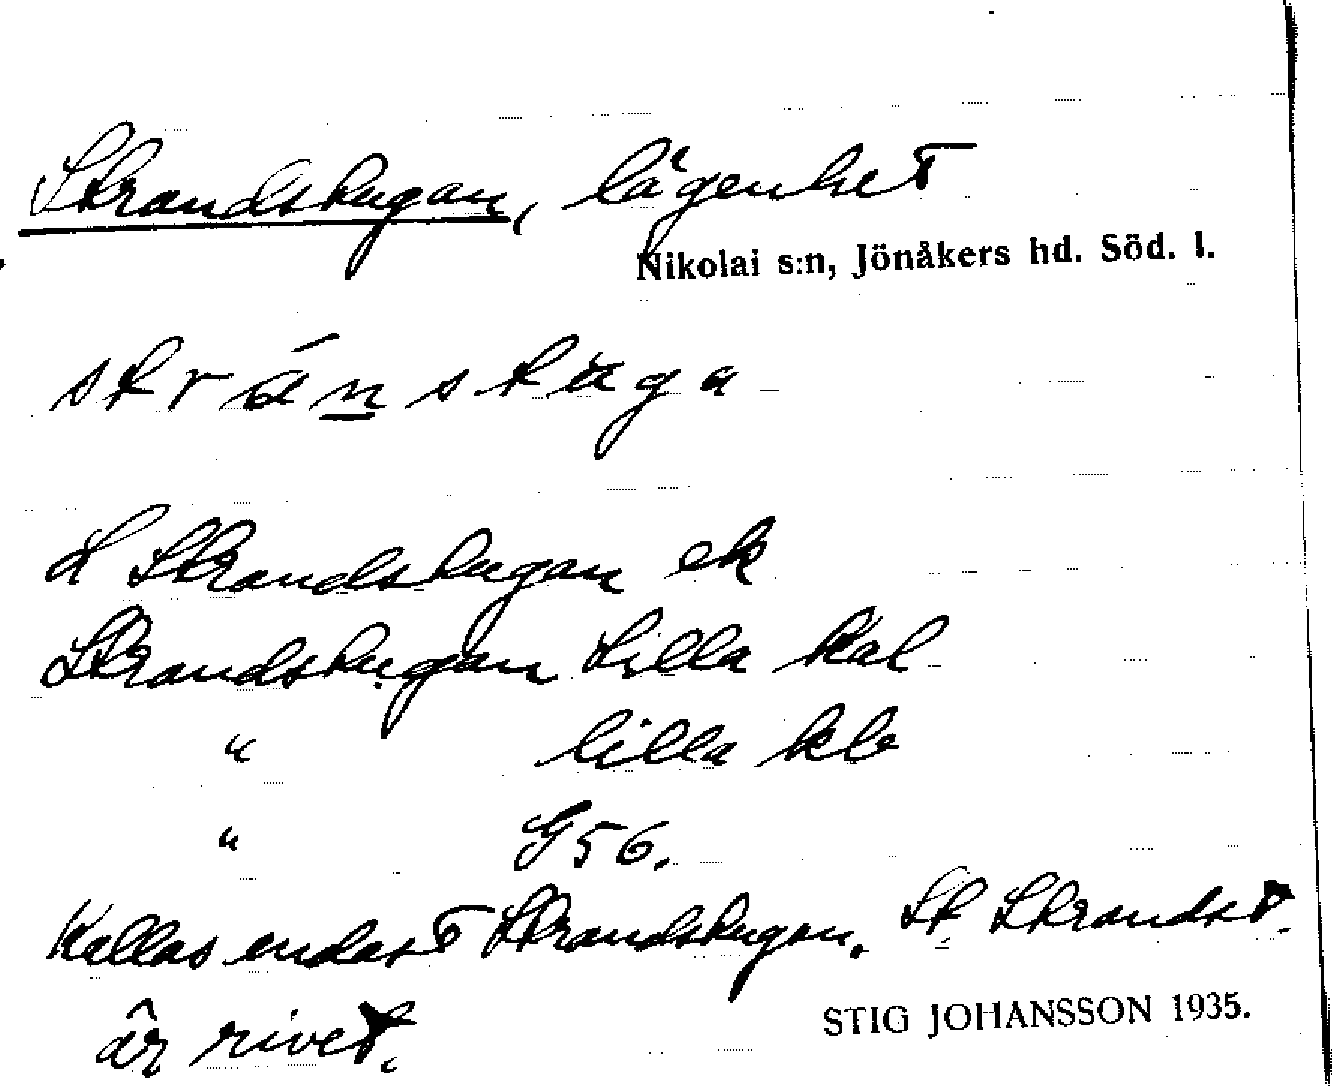 Strandstugan, lägenhet
Nikolai s:n, Jönåkers hd. Söd. l.
stránstuga
Strandstugan ek
Strandstugan Lilla kal
" lilla kb
" G 56.
Kallas endast Strandstugan. St Strandst.
är rivet.
STIG JOHANSSON 1935.